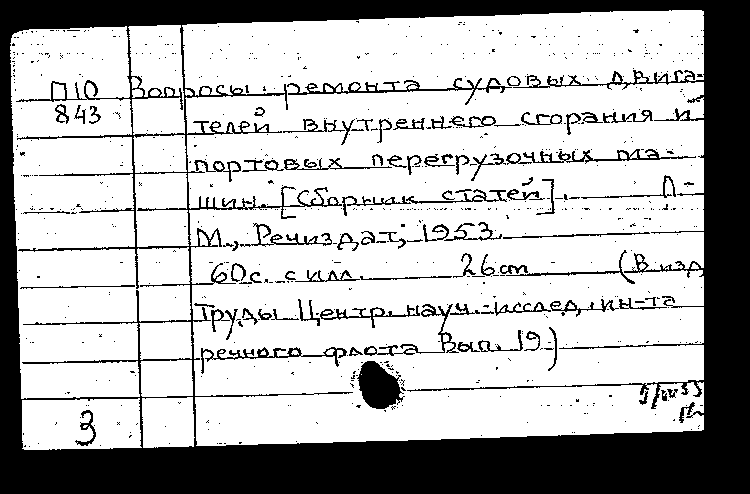 П10 Вопросы ремонта судовых двига-
843 телей внутреннего сгорания и
портовых перегрузочных ма-
шин. [Сборник статей]. Л-
М., Речиздат, 1953.
60с. с илл. 26cm (В изд
Труды Центр. науч.-исслед. ин-та
речного флота Вып. 19)
3